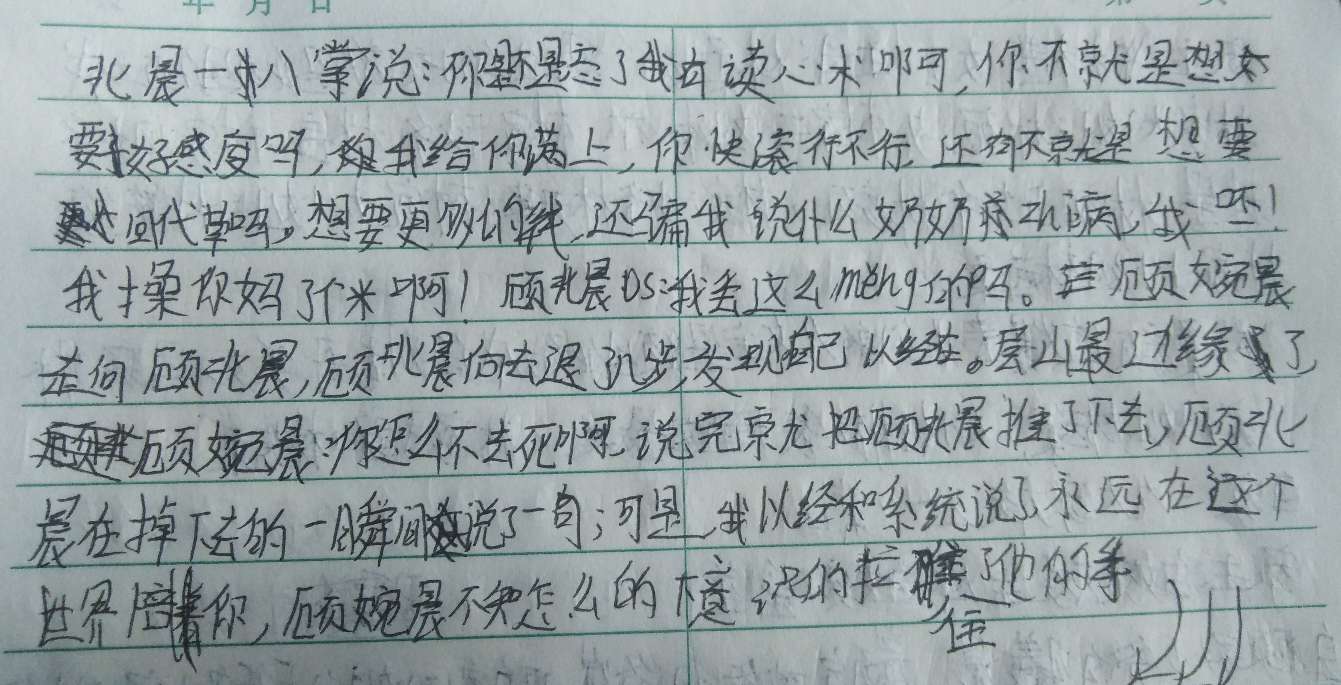 年 月 日
北晨一扒八掌说:你是不是忘了我有读心术啊可,你不就是想
要好感度吗,我给你满上,你快滚行不行 还不就是 想 要
回代草吗。想要更多的钱,还骗我 说什么奶奶 病,我 呸!
我操你妈了个米啊!顾北晨OS:我丢这么meng的吗。 顾婉晨
走向顾北晨,顾北晨向去退了几步,发现自己以经在。层山最边缘了,
顾婉晨:你怎么不去死啊 说完京尤把顾北晨推了下去,顾北
晨在掉下去的一瞬间说了一句;可是,我以经和系统说了永远在这个
世界陪着你,顾婉晨不知怎么的下意识的拉住了他的手